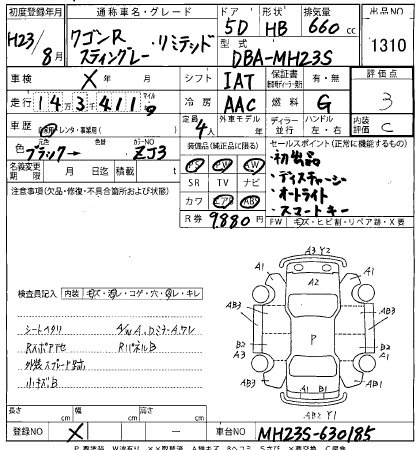 初度登録年月 通称車名・グレード ドア 形状 排気量 出品NO
H23/8月 ワゴンR スティングレー リミテッド 5D HB 660cc 1310
型式 DBA-MH23S
車検 X 年 月 シフト IAT 保証書 有・無 評価点
走行 143,411 マイル 冷房 AAC 燃料 G 3
車歴 自家用 レンタ・事業用( ) 定員 4人 外車モデル 年 ディーラー 並行 ハンドル 左・右 内装評価 C
色 ブラック 元色 色替 カラーNO ZJ3
装備品(純正品に限る) セールスポイント(正常に機能するもの)
名義変更期限 月 日 積載 t
PS PW CW
・初出品
SR TV ナビ
・ディスチャージ
カワ エアB ABS
・オートライト
R券 9,880円
・スマートキー
注意事項(欠品・修復・不具合箇所および状態)
FW キズ・ヒビ割・リペア跡・X要
A3 Y2
A1 A2 A1
AB3 AB3
B2 P B2
A3 A1
AB3
A1 AB1
AB2 Y1
検査員記入 内装 キズ・汚レ・コゲ・穴・スレ・キレ
シートヘタリ A/W A、Dミラー A、ワレ
RスポアセRパネルB
外装スプレー跡
小キズB
長さ cm 幅 cm 高さ cm
登録NO X ー 車台NO MH23S-630185